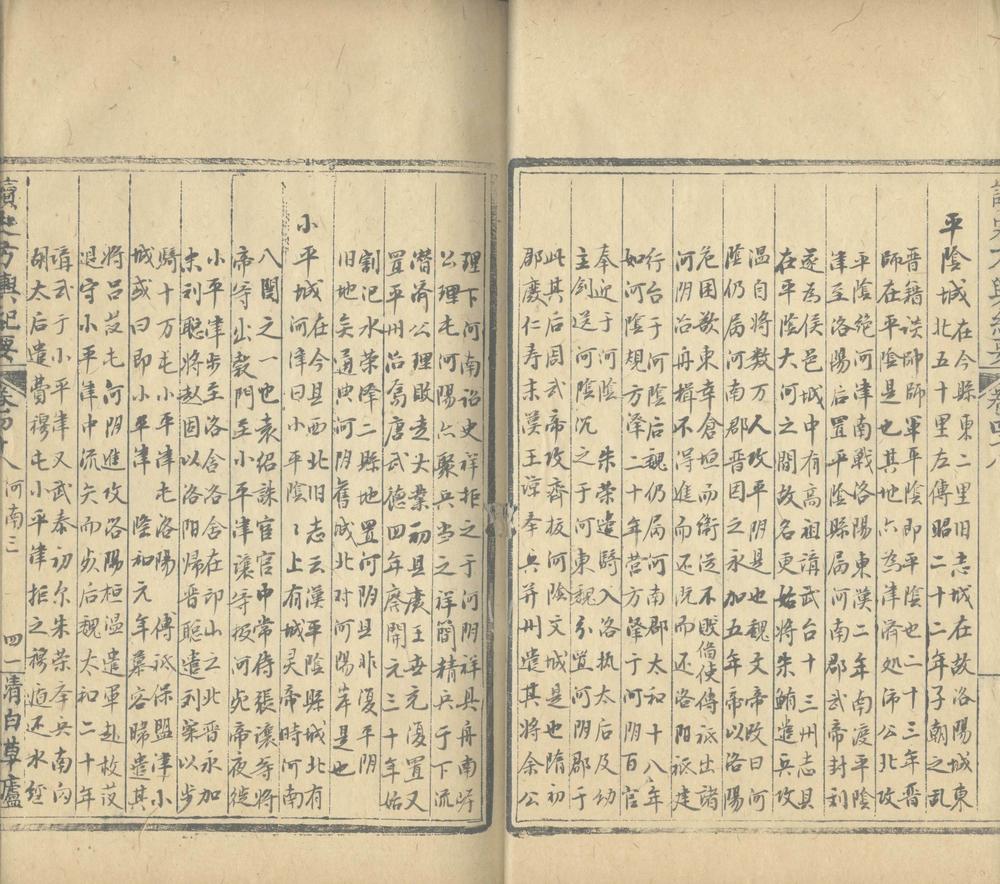 平陰城在今縣東二里旧志城在故洛陽城東
北五十里左傳昭二十二年子朝之乱
晋籍谈帅師軍平陰即平陰也二十三年晋
師在平陰是也其地亦為津濟処沛公北攻
平陰绝河津南戰洛陽東漢二年南渡平陰
津至洛陽后置平陰縣局河南郡武帝封刘
遂为侯邑城中有高祖講武台十三州志县
在平陰大河之間故名更始將朱鮪遣兵攻
温自将数万人攻平阴是也魏文帝改曰河
陰仍局河南郡晋因之永加五年帝以洛陽
危困欲東幸倉垣而衛従不臤備使傅祗出諸
河阴治舟楫不得進而还既而还洛阳祗建
行台于河陰后魏仍局河南郡太和十八年
如河陰規方泽二十年营方泽于河阴百官
奉迎于河陰 朱荣遣騎入洛执太后及幼
主釗送河陰沉之于河東魏分置河阴郡于
此其后周武帝攻齊拔河陰文城是也隋初
郡废仁寿末漢王諒奉兵并州遣其将余公
理下河南诏史祥拒之于河阴祥具舟南岸
公理屯河陽六聚兵当之祥簡精兵于下流
潜济公理敗走大業初县废王世充復置又
置平州治焉唐武德四年廃開元三十年始
割汜水荣泽二縣地置河阴县非復平阴
旧地矣通典河阴舊城北对河陽岸是也
小平城在今县西北旧志云漢平陰縣城北有
河津曰小平陰〻上有城灵帝時河南
八関之一也袁绍誅宦官中常侍張讓等将
帝等出穀門至小平津讓等投河死帝夜従
小平津步至洛舍洛舍在邙山之北晋永加
末刘聪将敖因以洛阳帰晋聪遣刘粲以步
騎十万屯小平津屯洛陽 傅祗保盟津小
城或曰即小平津 隆和元年慕容暐遣其
将吕䕶屯河阴進攻洛陽桓温遣軍赴救䕶
退守小平津中流矢而步后魏太和二十年
講武于小平津又武泰初尔朱荣奉兵南向
胡太后遣費穆屯小平津拒之穆 还水经
讀史方輿紀要 卷四十八 河南三 四一 清白草廬